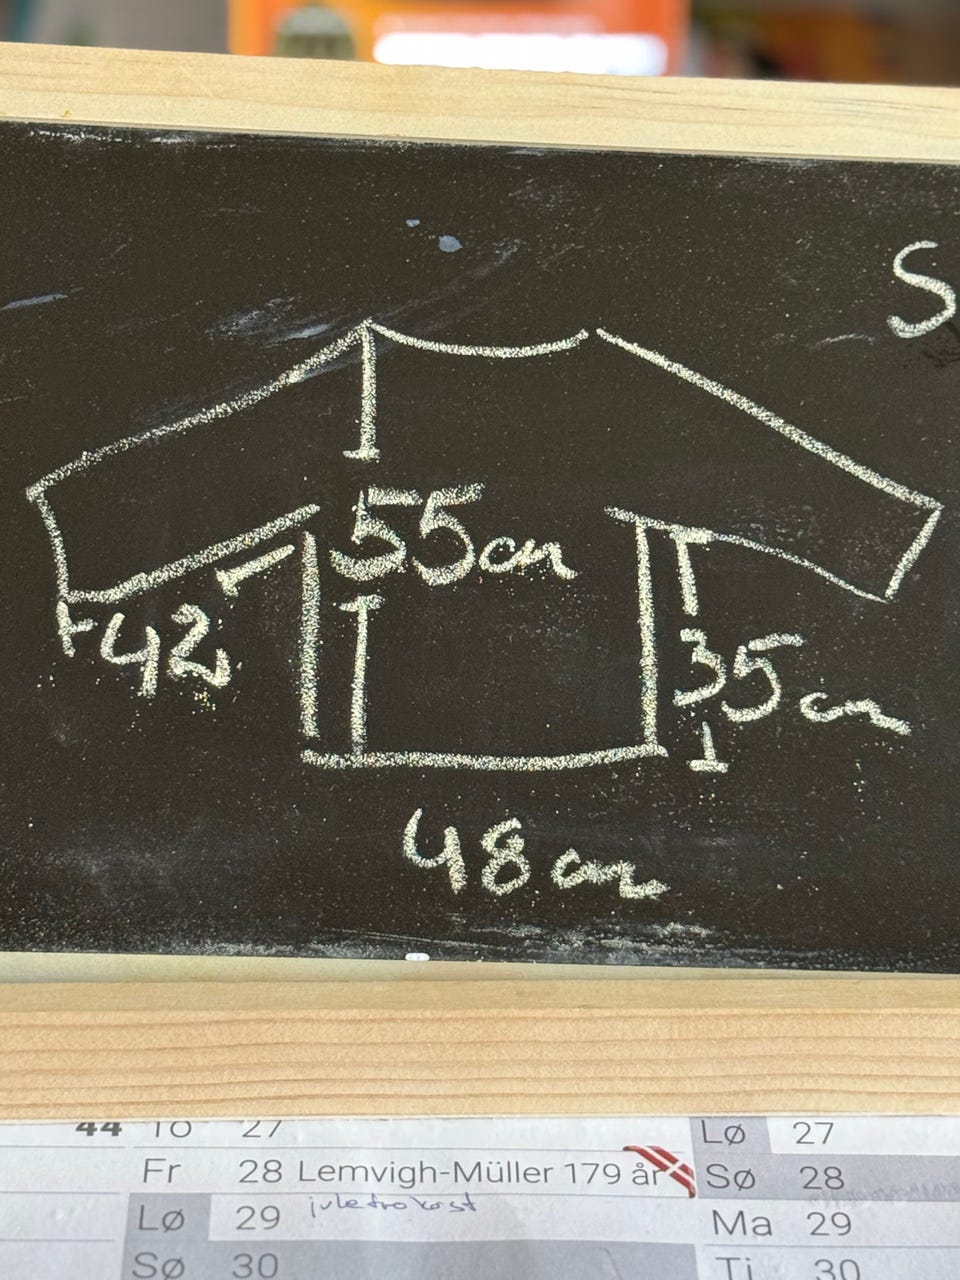 S
55cm
42
35cm
48cm
44 To 27
Lø 27
Fr 28 Lemvigh-Müller 179 år
Sø 28
Lø 29 julefrokost
Ma 29
Sø 30
Ti 30